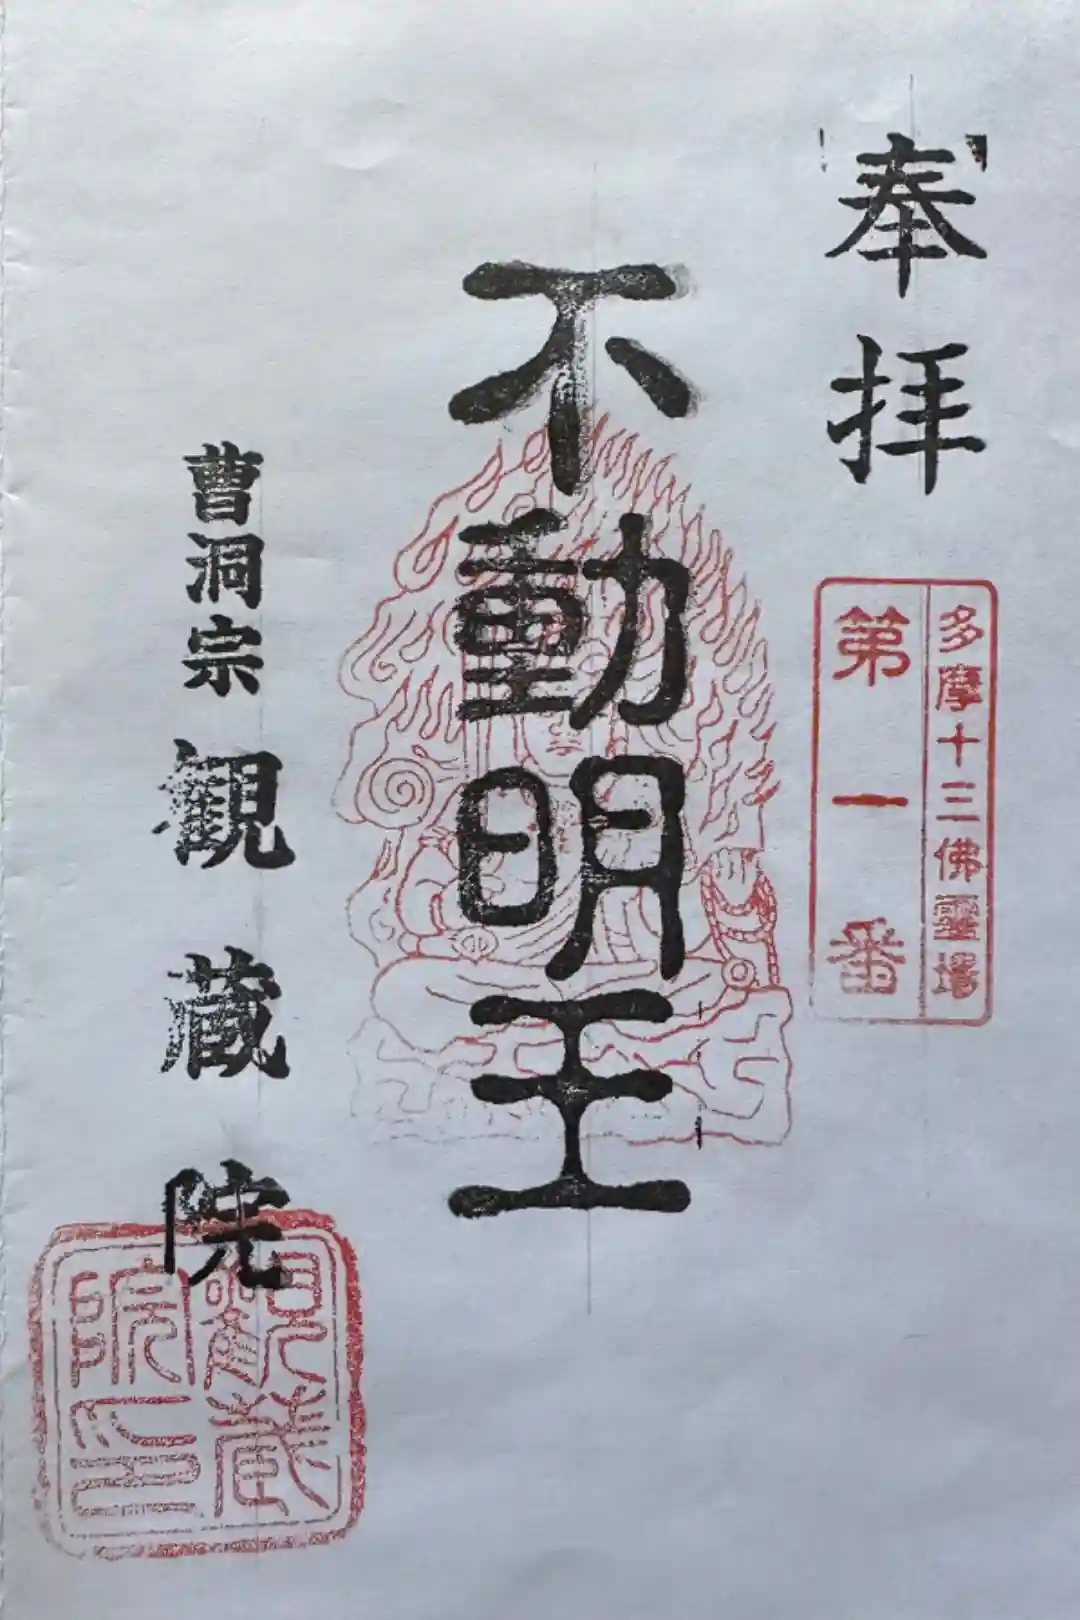 奉拝
多摩十三佛霊場
第一番
不動明王
曹洞宗 観蔵院
観蔵
院印